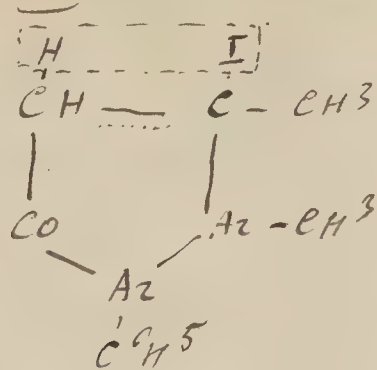 H I
CH C - CH³
CO Az - CH³
Az
C⁶H⁵